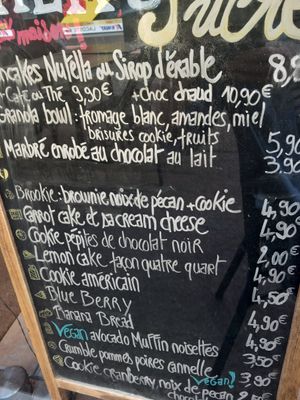 Sucré
ncakes Nutella ou Sirop d'érable 8,9
+Café ou Thé 9,90€ +Choc chaud 10,90€
Granola bowl: fromage blanc, amandes, miel
brisures cookie, fruits 5,90
Marbré enrobé au chocolat au lait 3,90
Brookie: brownie noix de pécan + cookie 4,90
Carrot cake et sa cream cheese 4,90
Cookie pépites de chocolat noir 2,00
Lemon cake façon quatre quart 4,90€
Cookie américain 4,50€
Blue Berry 4,90€
Banana Bread 4,90€
Vegan avocado Muffin noisettes 3,50
Crumble pommes poires cannelle 3,90€
Cookie cranberry noix de pécan Vegan!